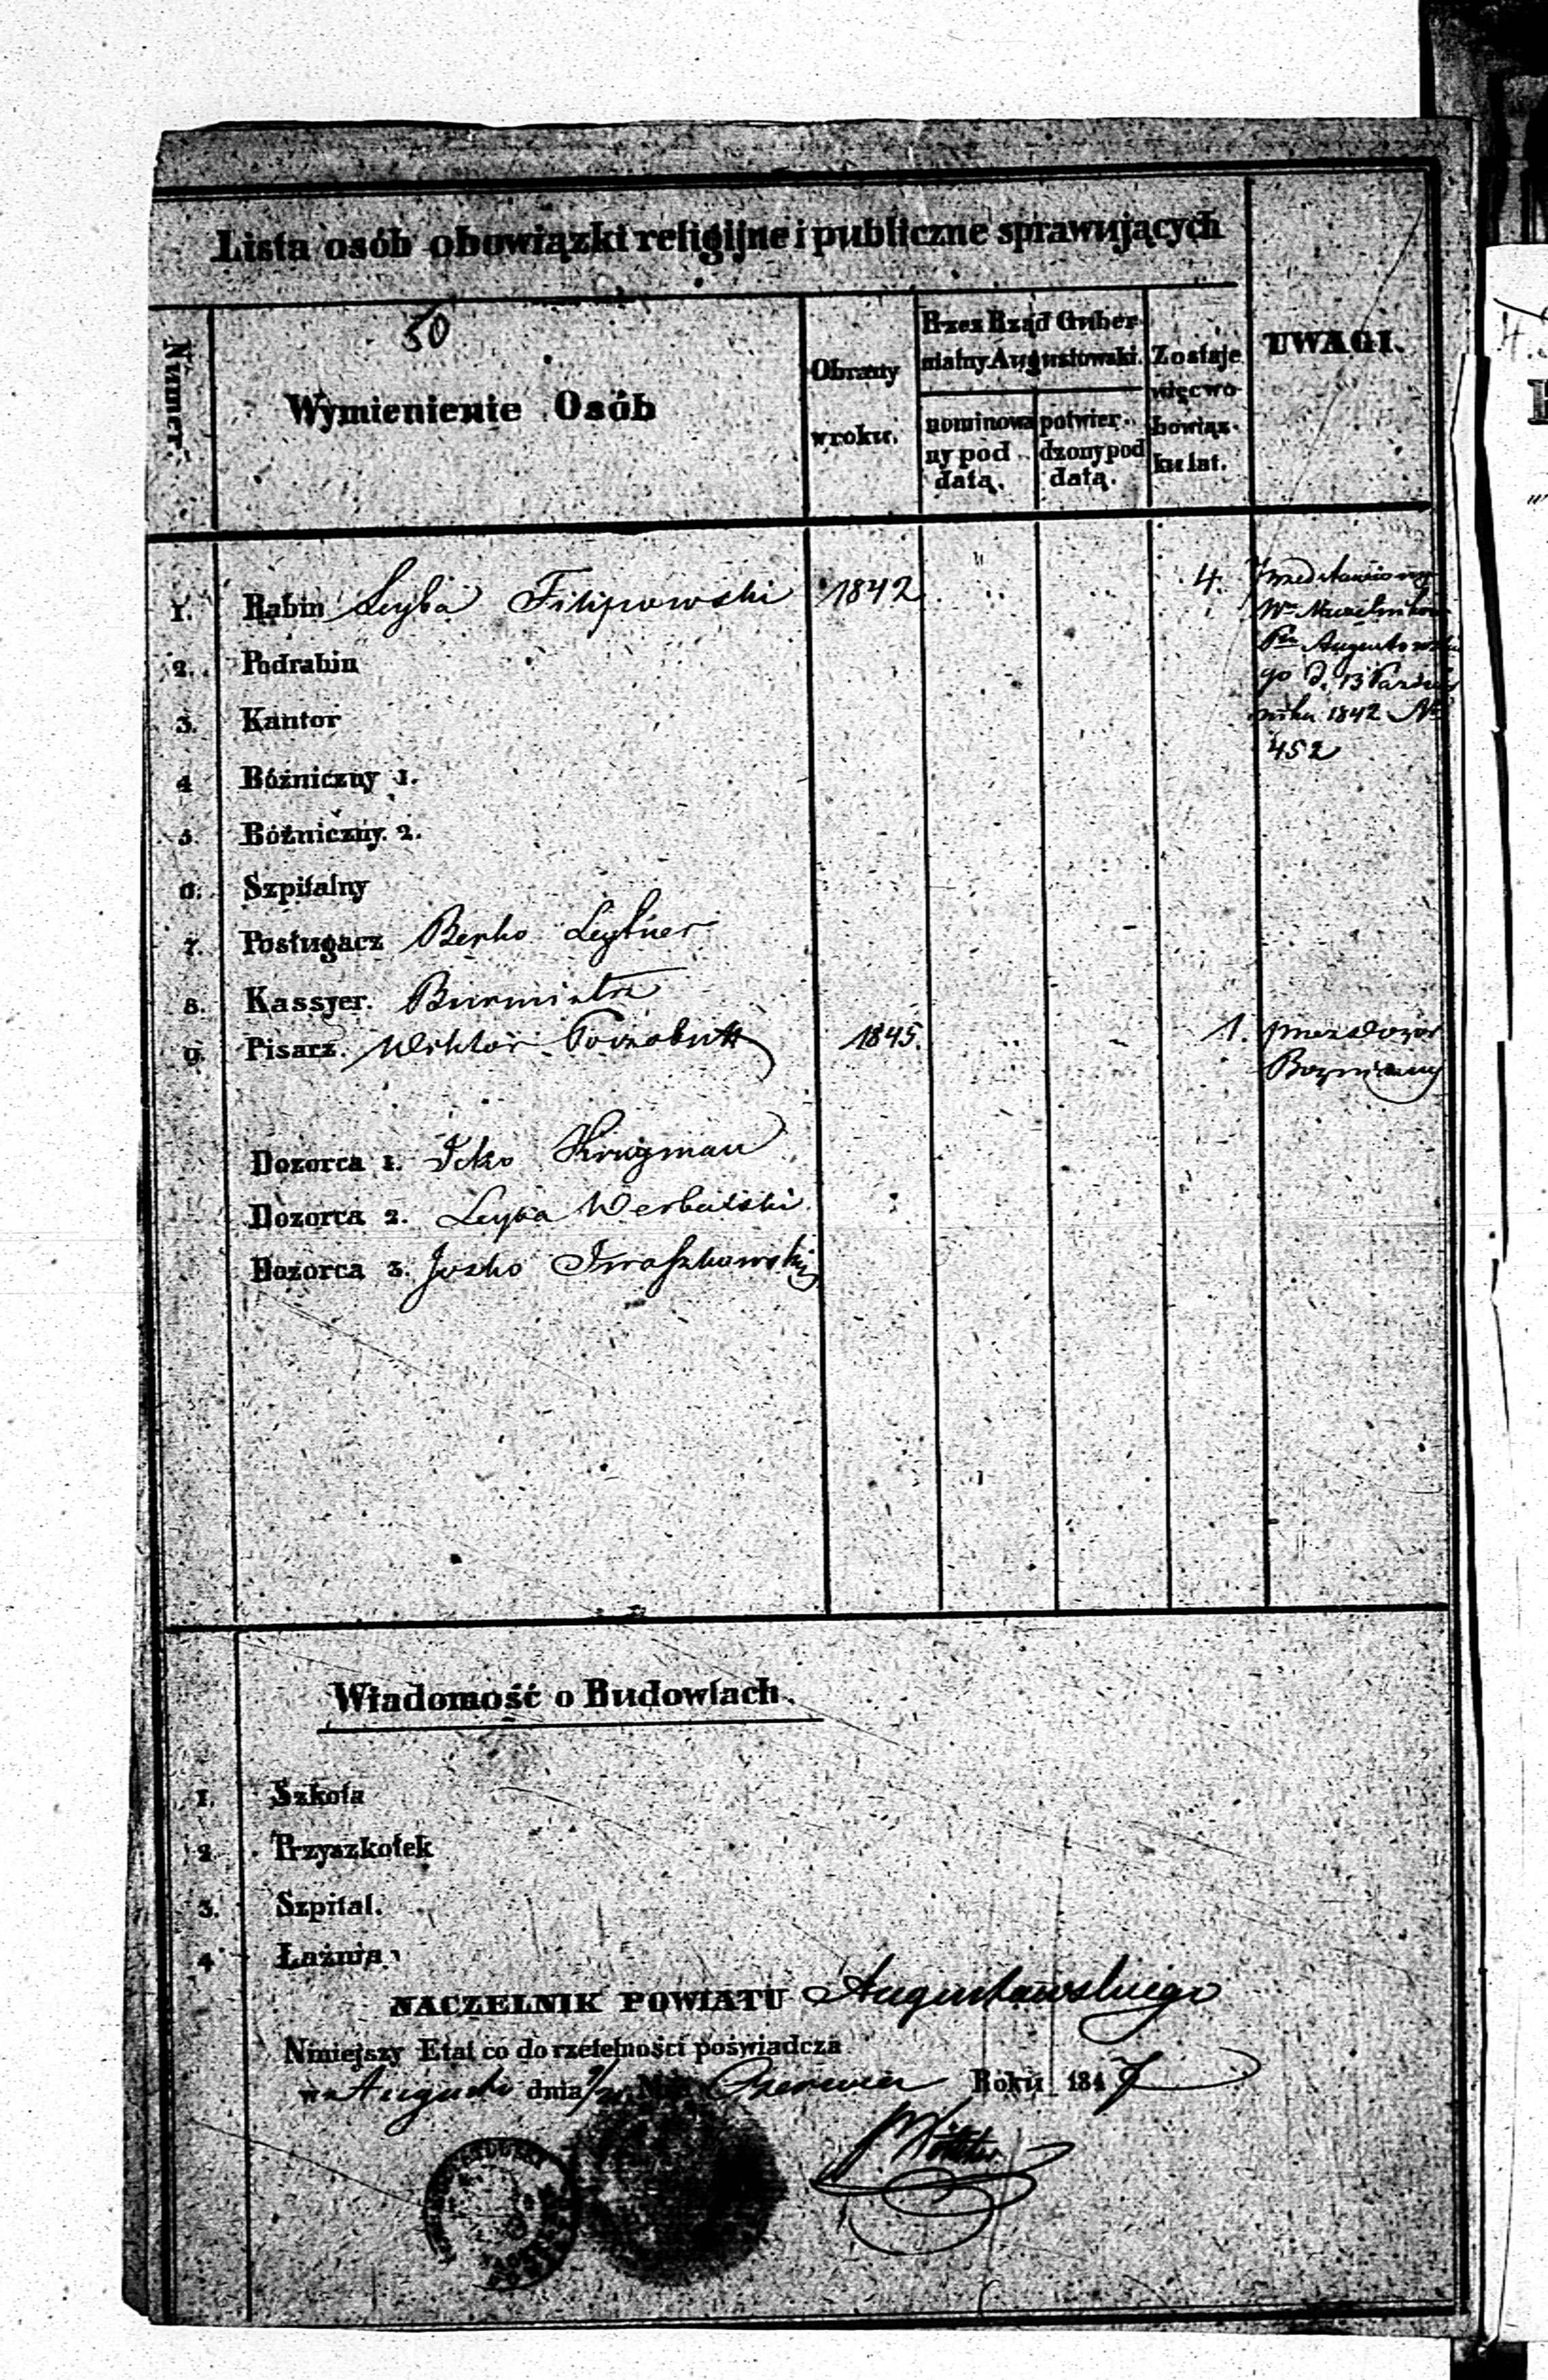 Lista osób obowiązki religijne i publiczne sprawujących
50
Numer.
Wymienienie Osób
Obrany w roku.
Przez Rząd Gubernialny Augustowski.
nominowany pod datą.
potwierdzony pod datą.
Zostaje więc w obowiązku lat.
UWAGI.
1. Rabin Leyba Filipowski 1842 4. Przedstawiony
Wu Naczelnikowi
Ptu Augustowskie
go d. 13 Paździer
nika 1842 No
452
2. Podrabin
3. Kantor
4 Bóżniczny 1.
5. Bóżniczny 2.
6. Szpitalny
7. Posługacz Berko Leybner
8. Kassyer. Burmistrz
9. Pisarz. Wiktor 1845. 1. przez Dozor
Bozniczny
Dozorca 1. Icko Krugman
Dozorca 2. Leyba Werbelski
Dozorca 3. Josko Iwaszkowski
Wiadomość o Budowlach.
1. Szkoła
2. Przyszkołek
3. Szpital.
4 Łaźnia
NACZELNIK POWIATU Augustowskiego
Niniejszy Etat co do rzetelności poświadcza
w Augustowie dnia Czerwca Roku 1847